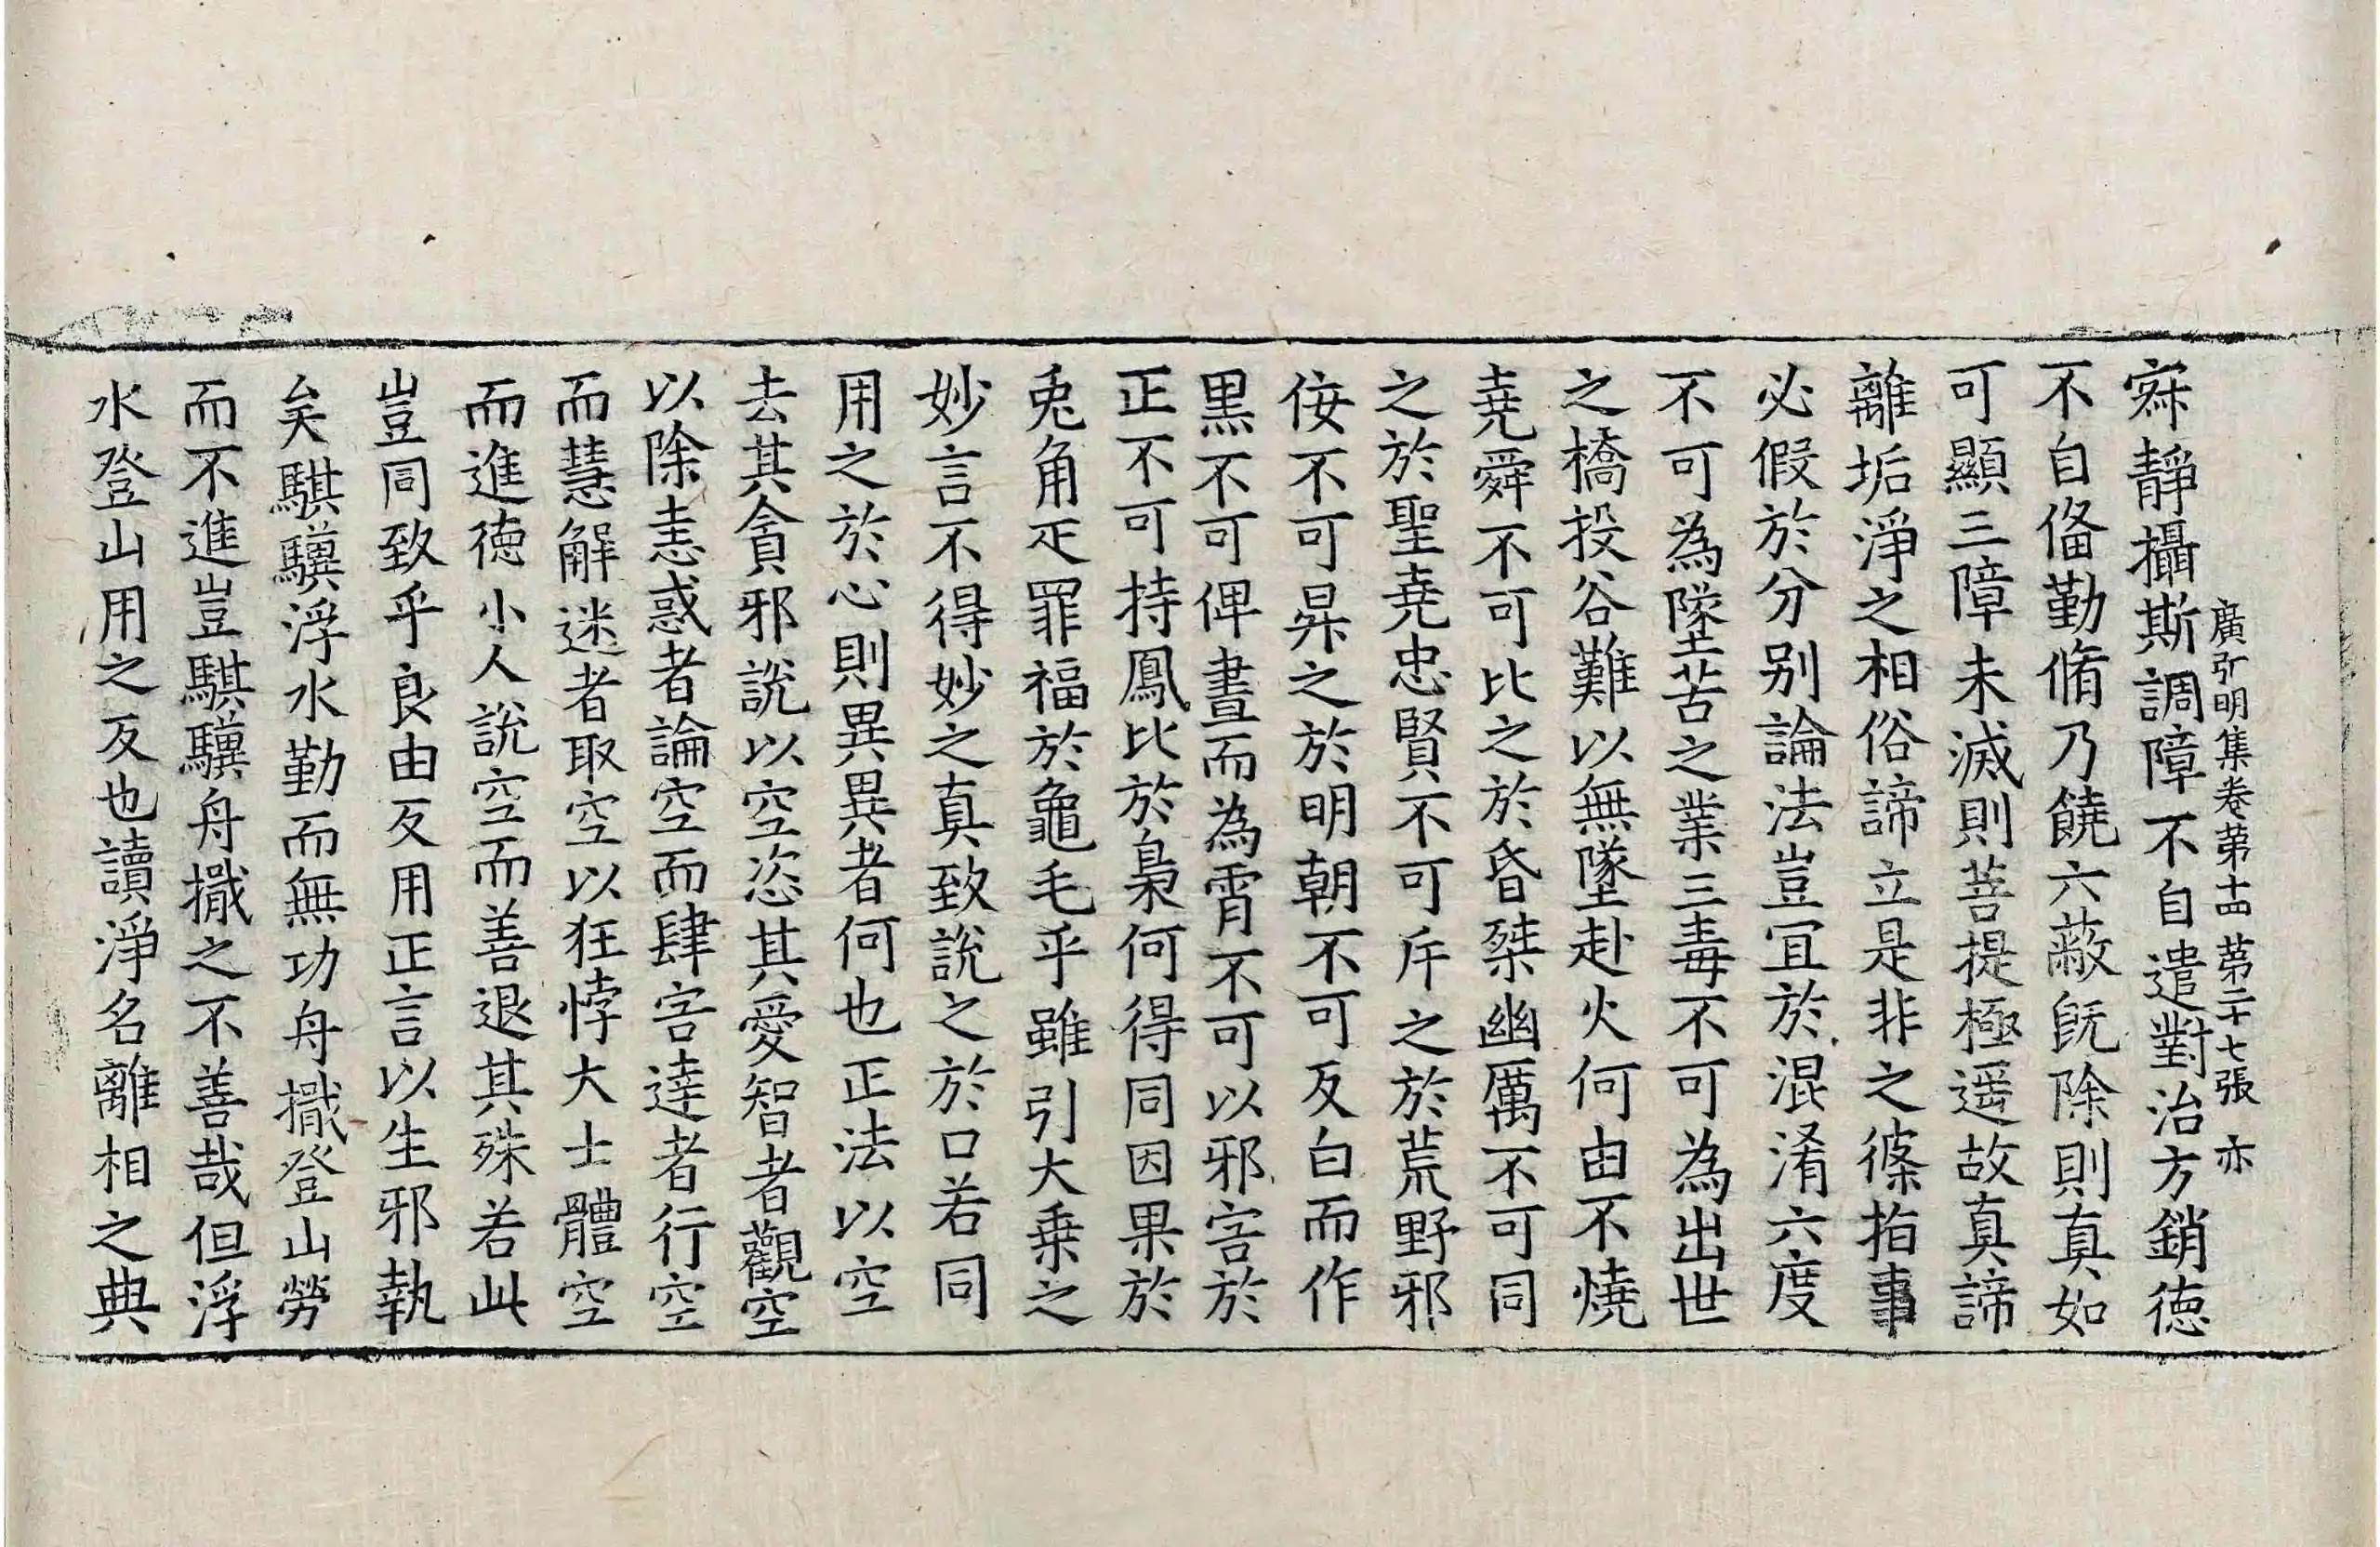 廣弘明集卷第十四 第二十七張 亦
寂靜攝斯調障不自遣對治方銷德
不自俻勤脩乃饒六蔽旣除則真如
可顯三障未滅則菩提極遥故真諦
離垢淨之相俗諦立是非之條指事
必假於分别論法豈冝於混淆六度
不可為墜苦之業三毒不可為出世
之橋投谷難以無墜赴火何由不燒
堯舜不可比之於昏桀幽厲不可同
之於聖堯忠賢不可斥之於荒野邪
侫不可昇之於明朝不可反白而作
黒不可俾晝而為霄不可以邪害於
正不可持鳳比於梟何得同因果於
兎角疋罪福於龜毛乎雖引大乗之
妙言不得妙之真致說之於口若同
用之於心則異異者何也正法以空
去其貪邪說以空恣其愛智者觀空
以除恚惑者論空而肆害達者行空
而慧解迷者取空以狂悖大士體空
而進徳小人說空而善退其殊若此
豈同致乎良由反用正言以生邪執
矣騏驥浮水勤而無功舟檝登山勞
而不進豈騏驥舟檝之不善哉但浮
水登山用之反也讀淨名離相之典